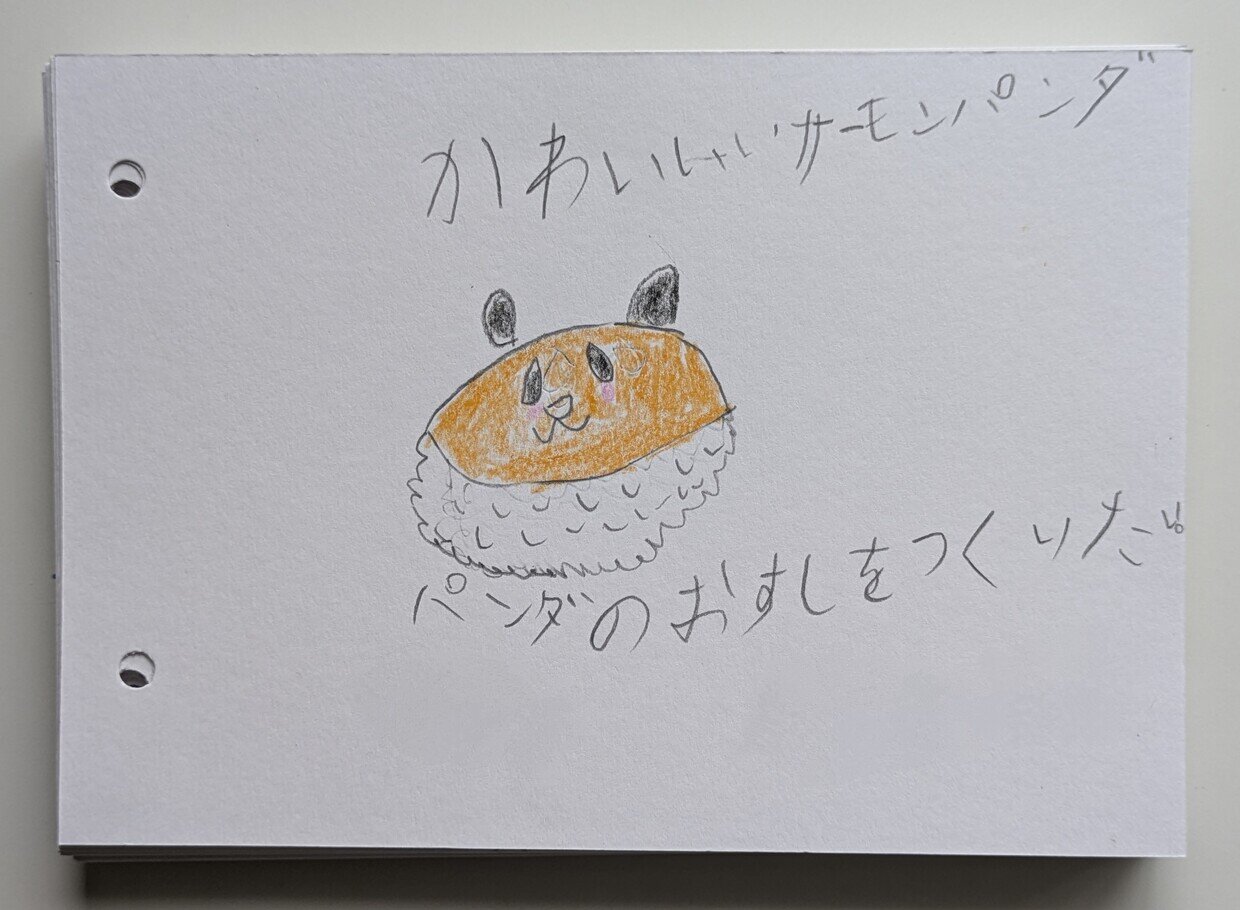 かわいいいサーモンパンダ
パンダのおすしをつくりたい。